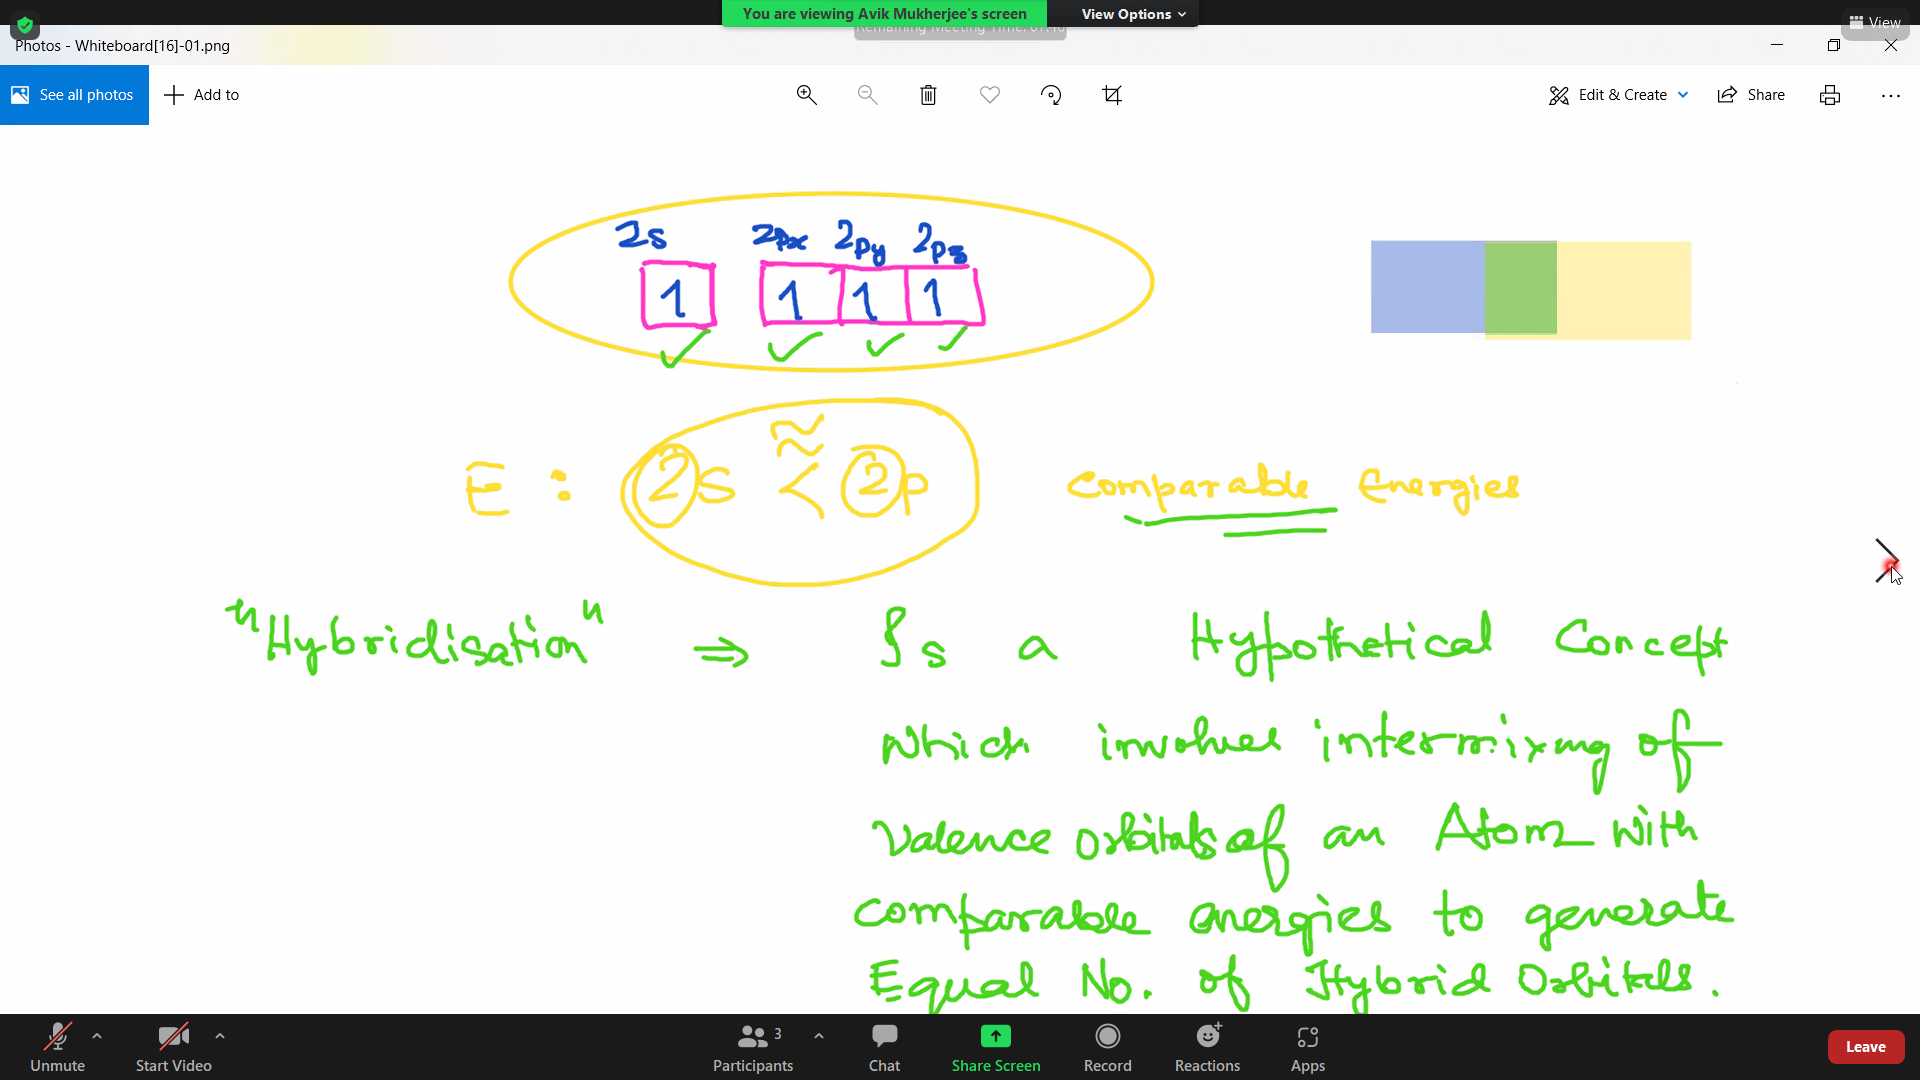 You are viewing Avik Mukherjee's screen
View Options
View
Photos - Whiteboard[16]-01.png
See all photos
Add to
Edit & Create
Share
2s 2px 2py 2pz
1 1 1 1
E : 2s ≈< 2p Comparable Energies
"Hybridisation" ⇒ Is a Hypothetical Concept
which involves intermixing of
valence orbitals of an Atom with
comparable energies to generate
Equal No. of Hybrid Orbitals.
Unmute
Start Video
Participants
3
Chat
Share Screen
Record
Reactions
Apps
Leave